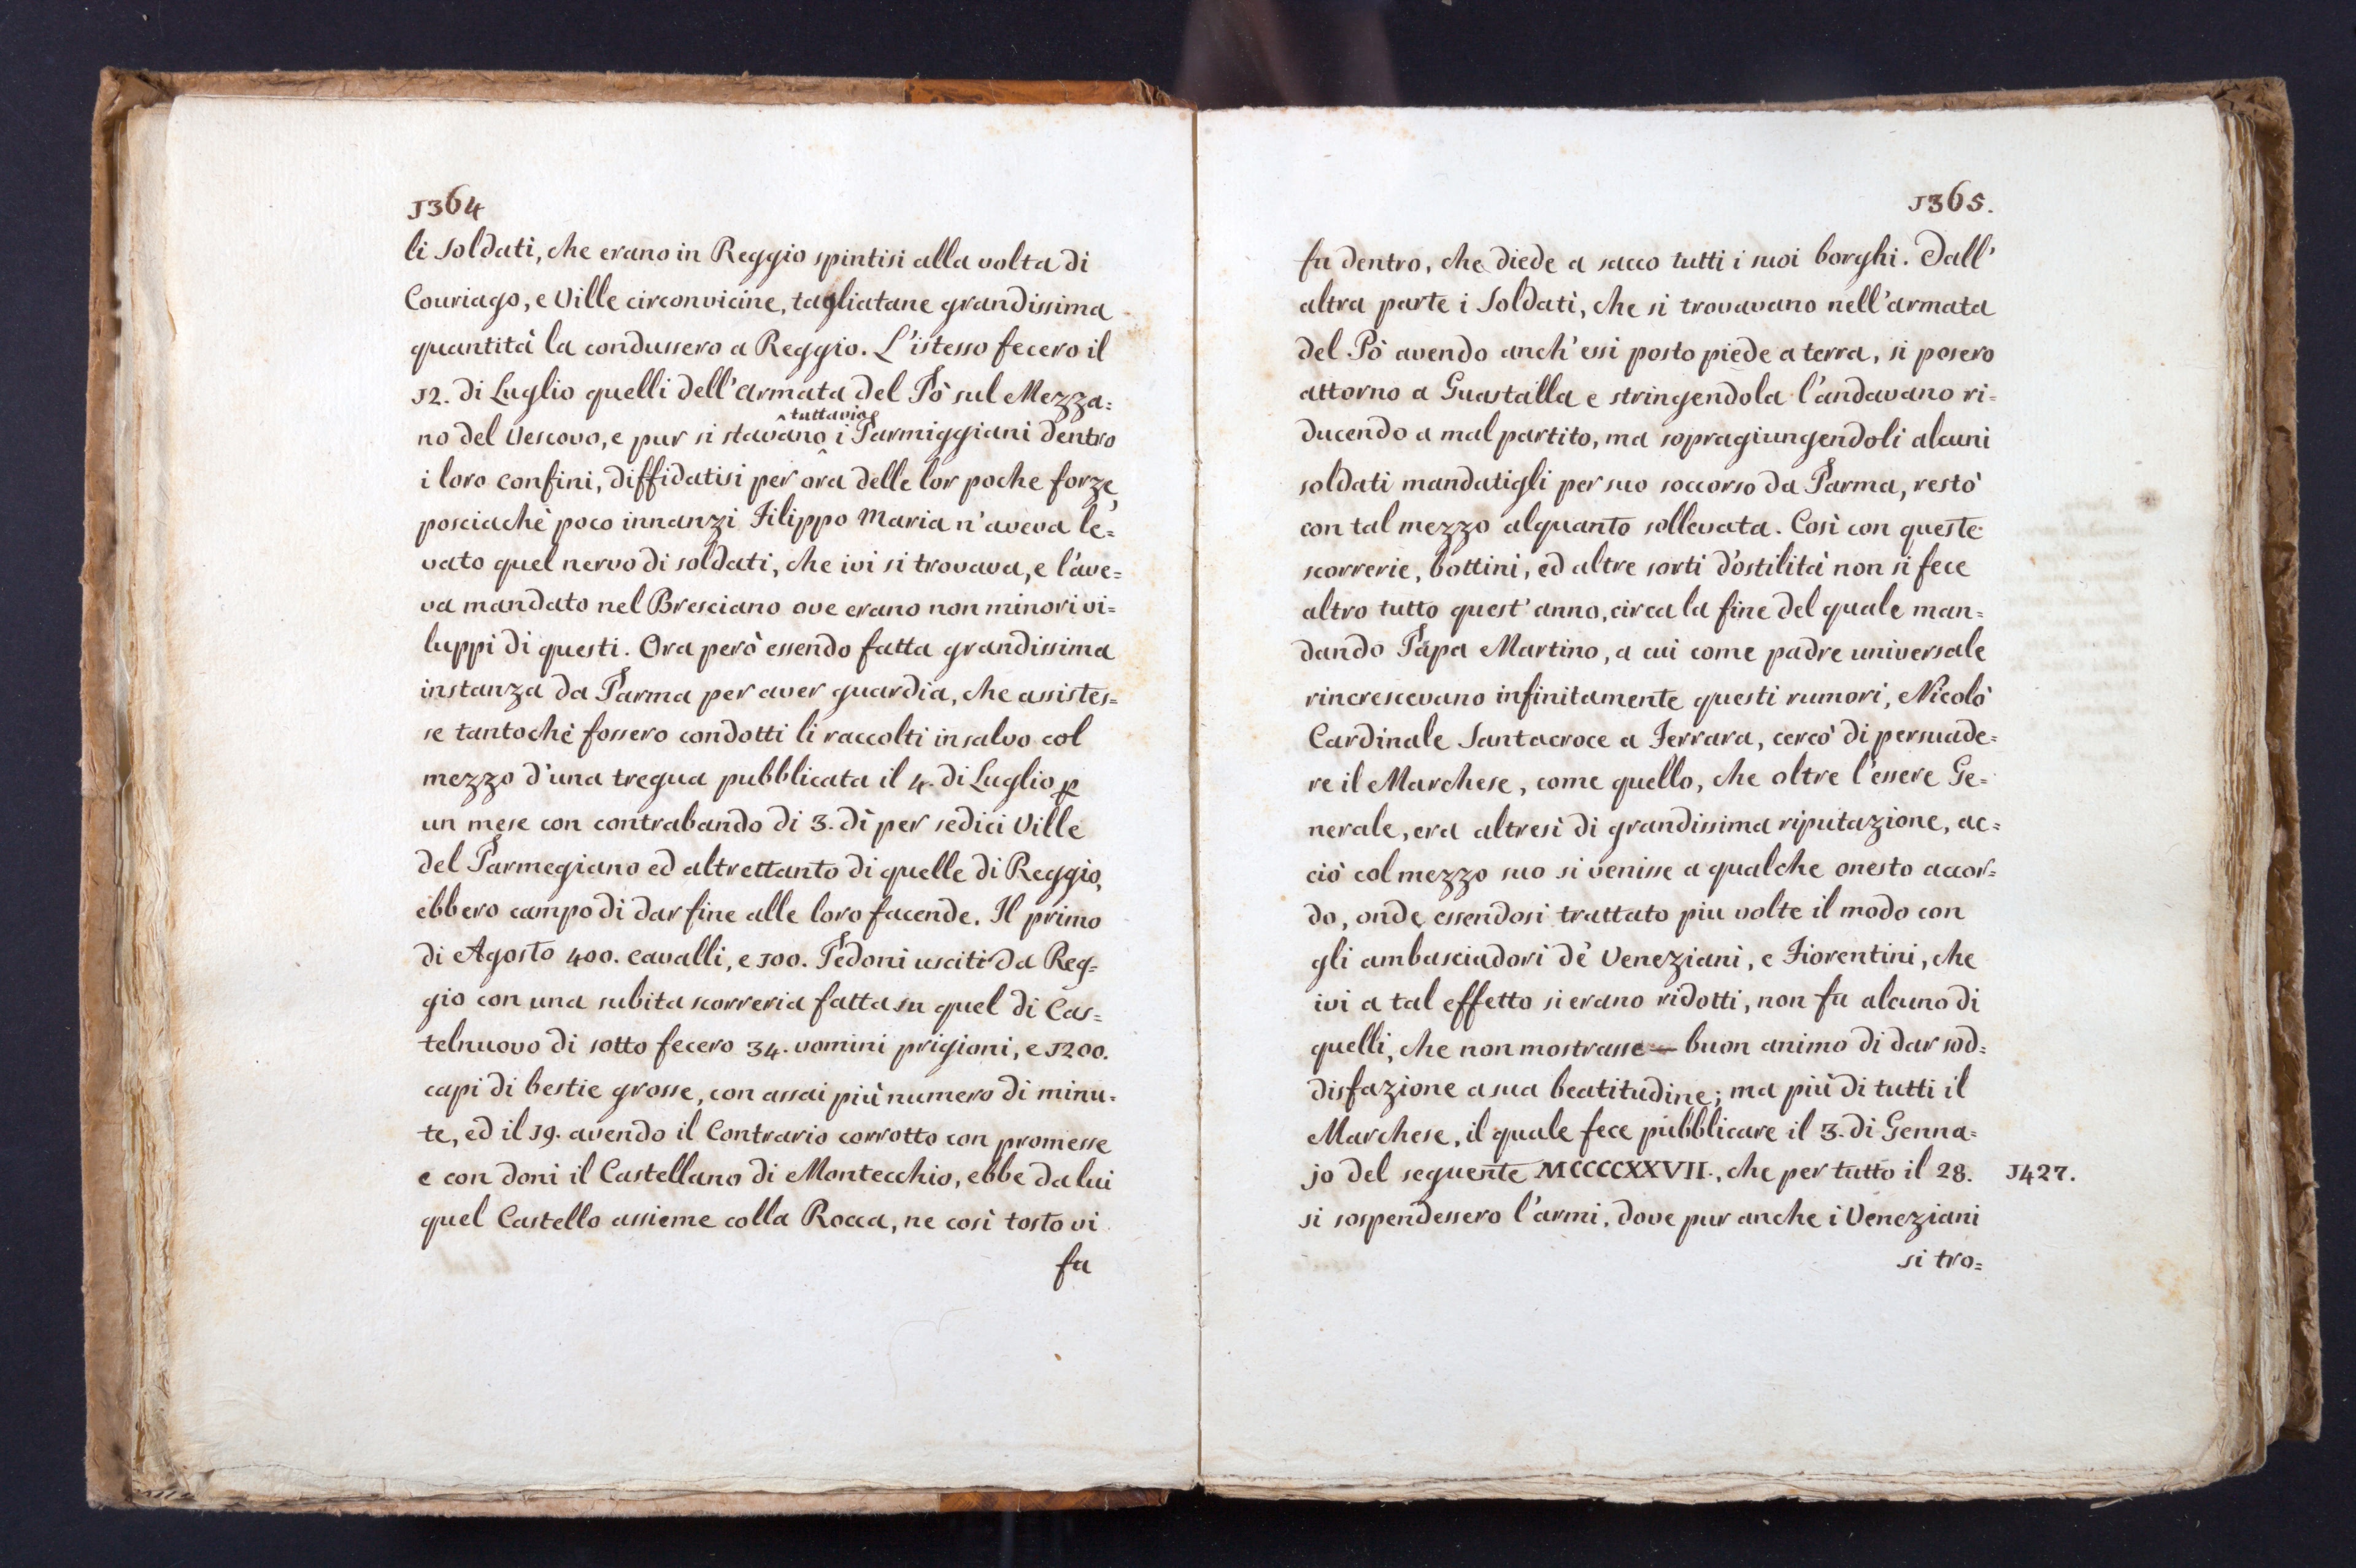 1364
li Soldati, che erano in Reggio spintisi alla volta di
Couriago, e Ville circonvicine, tagliatane grandissima
quantità la condussero a Reggio. L'istesso fecero il
12. di Luglio quelli dell'armata del Pò sul Mezza=
tuttavia
no del Vescovo, e pur si stavano i Parmiggiani dentro
i loro confini, diffidatisi per ora delle lor poche forze,
posciachè poco innanzi Filippo Maria n'aveva le=
vato quel nervo di soldati, che ivi si trovava, e l'ave=
va mandato nel Bresciano ove erano non minori vi=
luppi di questi. Ora però essendo fatta grandissima
instanza da Parma per aver guardia, che assistes=
se tantochè fossero condotti li raccolti in salvo col
mezzo d'una tregua pubblicata il 4. di Luglio p
un mese con contrabando di 3. dì per sedici Ville
del Parmegiano ed altrettanto di quelle di Reggio,
ebbero campo di dar fine alle loro facende. Il primo
di Agosto 400. cavalli, e 100. Pedoni usciti da Reg=
gio con una subita scorreria fatta su quel di Cas=
telnuovo di sotto fecero 34. uomini prigioni, e 1200.
capi di bestie grosse, con assai più numero di minu=
te, ed il 19. avendo il Contrario corrotto con promesse
e con doni il Castellano di Montecchio, ebbe da lui
quel Castello assieme colla Rocca, ne così tosto vi
fu
1365.
fu dentro, che diede a sacco tutti i suoi borghi. Dall'
altra parte i Soldati, che si trovavano nell'armata
del Pò avendo anch'essi posto piede a terra, si posero
attorno a Guastalla e stringendola l'andavano ri=
ducendo a mal partito, ma sopragiungendoli alcuni
soldati mandatigli per suo soccorso da Parma, restò
con tal mezzo alquanto sollevata. Così con queste
scorrerie, bottini, ed altre sorti d'ostilità non si fece
altro tutto quest'anno, circa la fine del quale man=
dando Papa Martino, a cui come padre universale
rincrescevano infinitamente questi rumori, Nicolò
Cardinale Santacroce a Ferrara, cercò di persuade=
re il Marchese, come quello, che oltre l'essere Ge=
nerale, era altresì di grandissima riputazione, ac=
ciò col mezzo suo si venisse a qualche onesto accor=
do, onde essendosi trattato piu volte il modo con
gli ambasciadori de' Veneziani, e Fiorentini, che
ivi a tal effetto si erano ridotti, non fu alcuno di
quelli, che non mostrasse — buon animo di dar sod=
disfazione a sua beatitudine; ma più di tutti il
Marchese, il quale fece pubblicare il 3. di Genna=
jo del seguente MCCCCXXVII., che per tutto il 28. 1427.
si sospendessero l'armi, dove pur anche i Veneziani
si tro=